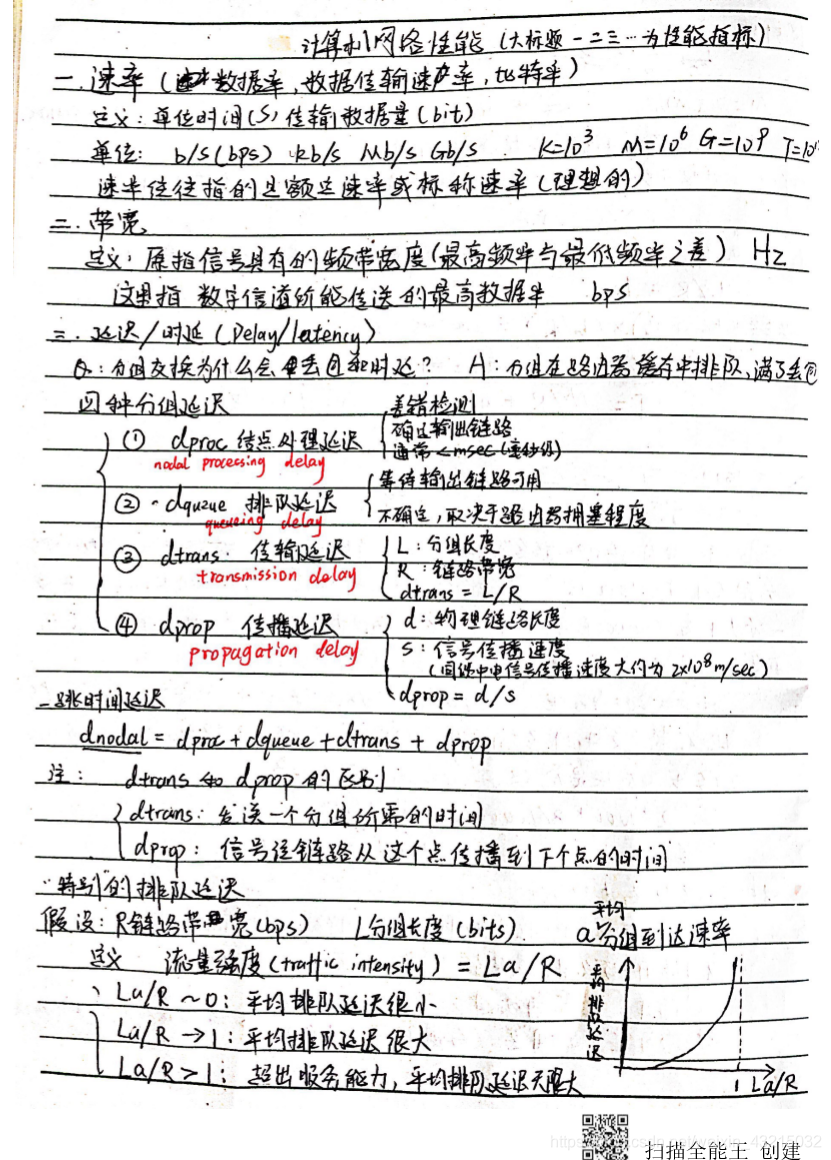 计算机网络性能 (大标题一二三…为性能指标)
一. 速率 (数据率, 数据传输速率, 比特率)
定义: 单位时间(s) 传输数据量 (bit)
单位: b/s (bps) kb/s Mb/s Gb/s K=10³ M=10⁶ G=10⁹ T=10
速率往往指的是额定速率或标称速率 (理想的)
二. 带宽
定义: 原指信号具有的频带宽度 (最高频率与最低频率之差) Hz
这里指 数字信道所能传送的最高数据率 bps
三. 延迟/时延 (Delay/latency)
Q: 分组交换为什么会丢包和时延? A: 分组在路由器缓存中排队, 满了丢包
四种分组延迟
① dproc 结点处理延迟
nodal processing delay
差错检测
确定输出链路
通常<msec (毫秒级)
② dqueue 排队延迟
queueing delay
等待输出链路可用
不确定, 取决于路由器拥塞程度
③ dtrans. 传输延迟
transmission delay
L: 分组长度
R: 链路带宽
dtrans = L/R
④ dprop 传播延迟
propagation delay
d: 物理链路长度
s: 信号传播速度
(同轴中电信号传播速度大约为 2x10⁸m/sec)
dprop = d/s
一跳时间延迟
dnodal = dproc + dqueue + dtrans + dprop
注: dtrans 和 dprop 的区别
dtrans: 发送一个分组所需的时间
dprop: 信号从链路从这个点传播到下个点的时间
特别的排队延迟
假设: R链路带宽 (bps) L分组长度 (bits) a平均分组到达速率
定义 流量强度 (traffic intensity) = La/R
La/R ~0: 平均排队延迟很小
La/R →1: 平均排队延迟很大
La/R >1: 超出服务能力, 平均排队延迟无限大
平均排队延迟
1 La/R
扫描全能王 创建